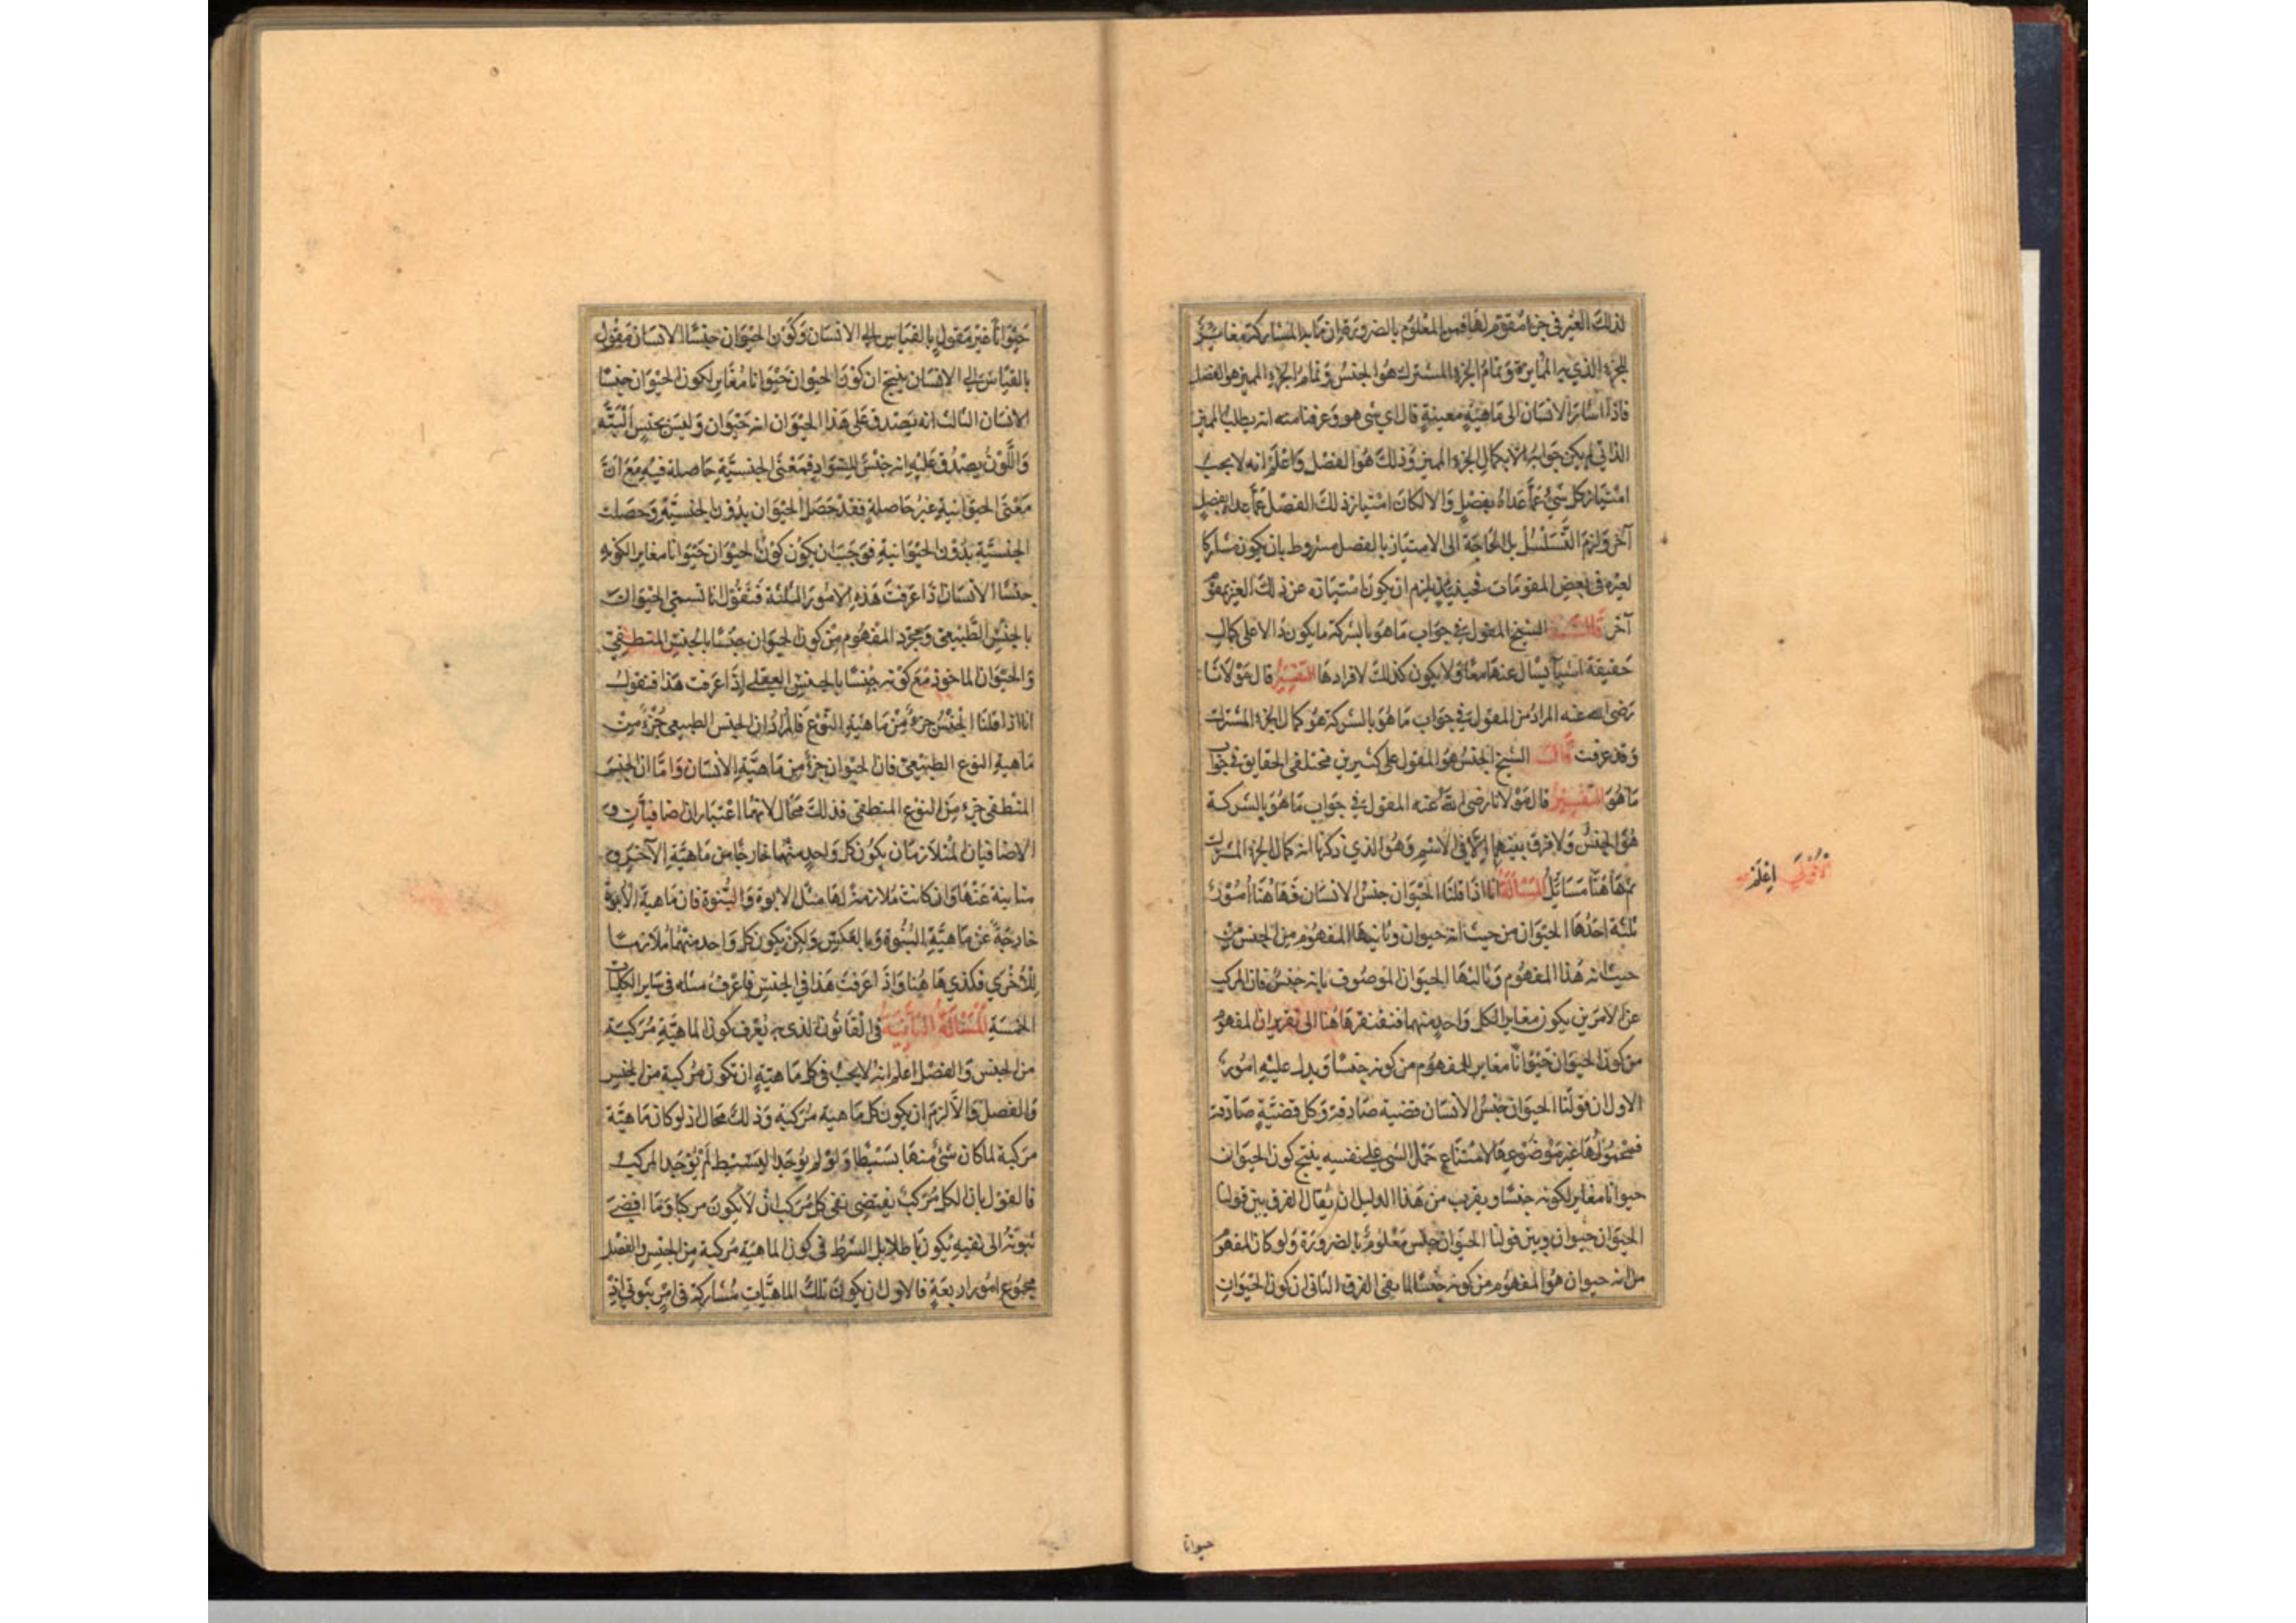 لذلك الغير في جزء مقوم لها فمن المعلوم بالضرورة ان ما به المشاركة مغاير
للجزء الذي به الممايزة وتمام الجزء المشترك هو الجنس وتمام الجزء المميز هو الفصل
فاذا اشار الانسان الى ماهية معينة قال اي شي هو وعرفنا منه انه يطلب المميز
الذاتي لم يكن جوابه الا بكمال الجزء المميز وذلك هو الفصل واعلم انه لا يجب
امتياز كل شيء عما عداه بفصل والا لكان امتياز ذلك الفصل عما عداه بفصل
آخر ولزم التسلسل بل الحاجة الى الامتياز بالفصل مشروط بان يكون مشاركا
لغيره في بعض المقومات فحينئذ يلزم ان يكون امتيازه عن ذلك الغير بمقوم
آخر قال الشيخ المقول في جواب ما هو بالشركة ما يكون دالا على كمال
حقيقة اشيآ يسال عنها معًا ولا يكون كذلك لافرادها التفسير قال مولانا
رضي الله عنه المراد من المقول في جواب ما هو بالشركة هو كمال الجزء المشترك
وقد عرفت قال الشيخ الجنس هو المقول على كثيرين مختلفي الحقايق في جواب
ما هو التفسير قال مولانا رضي الله عنه المقول في جواب ما هو بالشركة
هو الجنس ولا فرق بينهما الا في الاسم وهو الذي ذكرنا انه كمال الجزء المشترك
ثم هاهنا مسائل المسألة انا اذا قلنا الحيوان جنس الانسان فهاهنا امور
الاولى اعلم
ثلثة احدها الحيوان من حيث انه حيوان وثانيها المفهوم من الجنس من
حيث انه هذا المفهوم وثالثها الحيوان الموصوف بانه جنس فان المركب
عن الامرين يكون مغايرا لكل واحد منهما فنفتقر هاهنا الى تقرير ان المفهوم
من كون الحيوان حيوانًا مغاير للمفهوم من كونه جنسًا ويدل عليه امور
الاول ان قولنا الحيوان جنس الانسان قضية صادقة وكل قضية صادقة
فمحمولها غير موضوعها لامتناع حمل الشي على نفسه ينتج كون الحيوان
حيوانا مغاير لكونه جنسًا ويقرب من هذا الدليل ان يقال الفرق بين قولنا
الحيوان حيوان وبين قولنا الحيوان جنس معلوم بالضرورة ولو كان المفهوم
من انه حيوان هو المفهوم من كونه جنسًا لما بقي الفرق الثاني ان كون الحيوان
حيوانا
حيوانًا غير مقول بالقياس الى الانسان وكون الحيوان جنسًا للانسان مقول
بالقياس الى الانسان ينتج ان كون الحيوان حيوانا مغاير لكون الحيوان جنسًا
للانسان الثالث انه يصدق على هذا الحيوان انه حيوان وليس بجنس البتة
واللون يصدق عليه انه جنس للسواد فمعنى الجنسية حاصلة فيه مع ان
معنى الحيوانية غير حاصلة فقد حصل الحيوان بدون الجنسية وحصلت
الجنسية بدون الحيوانية فوجب ان يكون كون الحيوان حيوانا مغايرا لكونه
جنسًا للانسان اذا عرفت هذه الامور الثلثة فنقول انا نسمي الحيوان
بالجنس الطبيعي ومجرد المفهوم من كون الحيوان جنسًا بالجنس المنطقي
والحيوان الماخوذ مع كونه جنسًا بالجنس العقلي اذا عرفت هذا فنقول
انا اذا قلنا الجنس جزء من ماهية النوع فالمراد ان الجنس الطبيعي جزء من
ماهية النوع الطبيعي فان الحيوان جزء من ماهية الانسان واما ان الجنس
المنطقي جزء من النوع المنطقي فذلك محال لانهما اعتباران اضافيان و
الاضافيان المتلازمان يكون كل واحد منهما خارجًا من ماهية الآخر و
مباينة عنها وان كانت ملازمة لها مثل الابوة والبنوة فان ماهية الابوة
خارجة عن ماهية البنوة وبالعكس ولكن يكون كل واحد منهما ملازمًا
للأخرى فكذي هاهنا واذا عرفت هذا في الجنس فاعرف مثله في ساير الكليات
الخمسة المسألة الثانية في القانون الذي به نعرف كون الماهية مركبة
من الجنس والفصل اعلم انه لا يجب في كل ماهية ان تكون مركبة من الجنس
والفصل والا لزم ان يكون كل ماهية مركبة وذلك محال اذ لو كان ماهية
مركبة لما كان شئ منها بسيطا ولو لم يوجد البسيط لم يوجد المركب
فالقول بان الكل مركب يقتضي نفي كل مركب لان لا يكون مركبا وما افضى
ثبوته الى نفيه يكون باطلا بل الشرط في كون الماهية مركبة من الجنس والفصل
مجموع امور اربعة فالاول ان يكون تلك الماهيات مشاركة في امر ثبوتي اذ